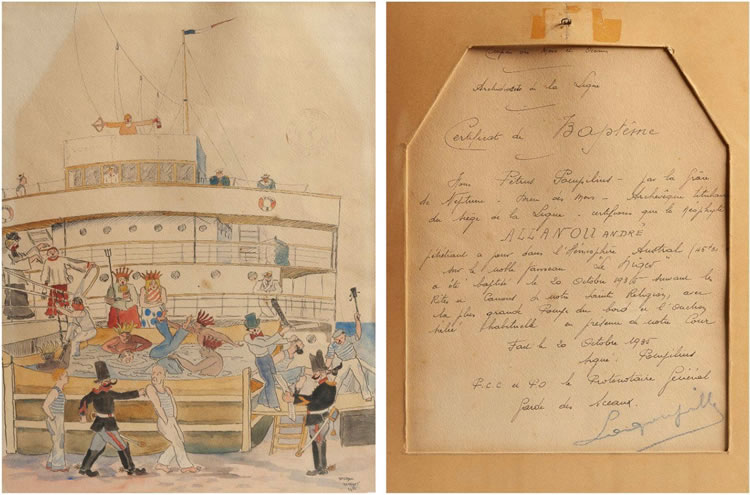 Archevêché de la Ligne
Certificat de Baptême
Nous Petrus Pompilius - par la Grâce
de Neptune - Dieu des Mers - Archevêque titulaire
du siège de la Ligne - certifions que le Néophyte
ALLANOU ANDRÉ
pénétrant ce jour dans l'Hémisphère Austral
sur le noble vaisseau "le Niger"
a été baptisé le 20 Octobre 1935 suivant le
Rite et Canons de notre Saint Religion, avec
la plus grande Pompe du bord et l'
habituelle en présence de notre Cour
Fait le 20 Octobre 1935
signé: Pompilius
P.C.C. et P.O le Protonotaire Général
Garde des Sceaux.